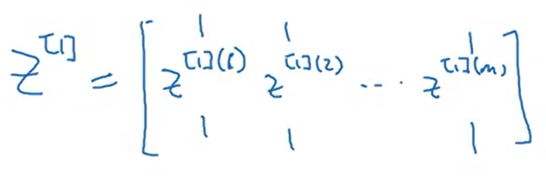 Z^[1] = [ z^[1](1) z^[1](2) ... z^[1](m) ]